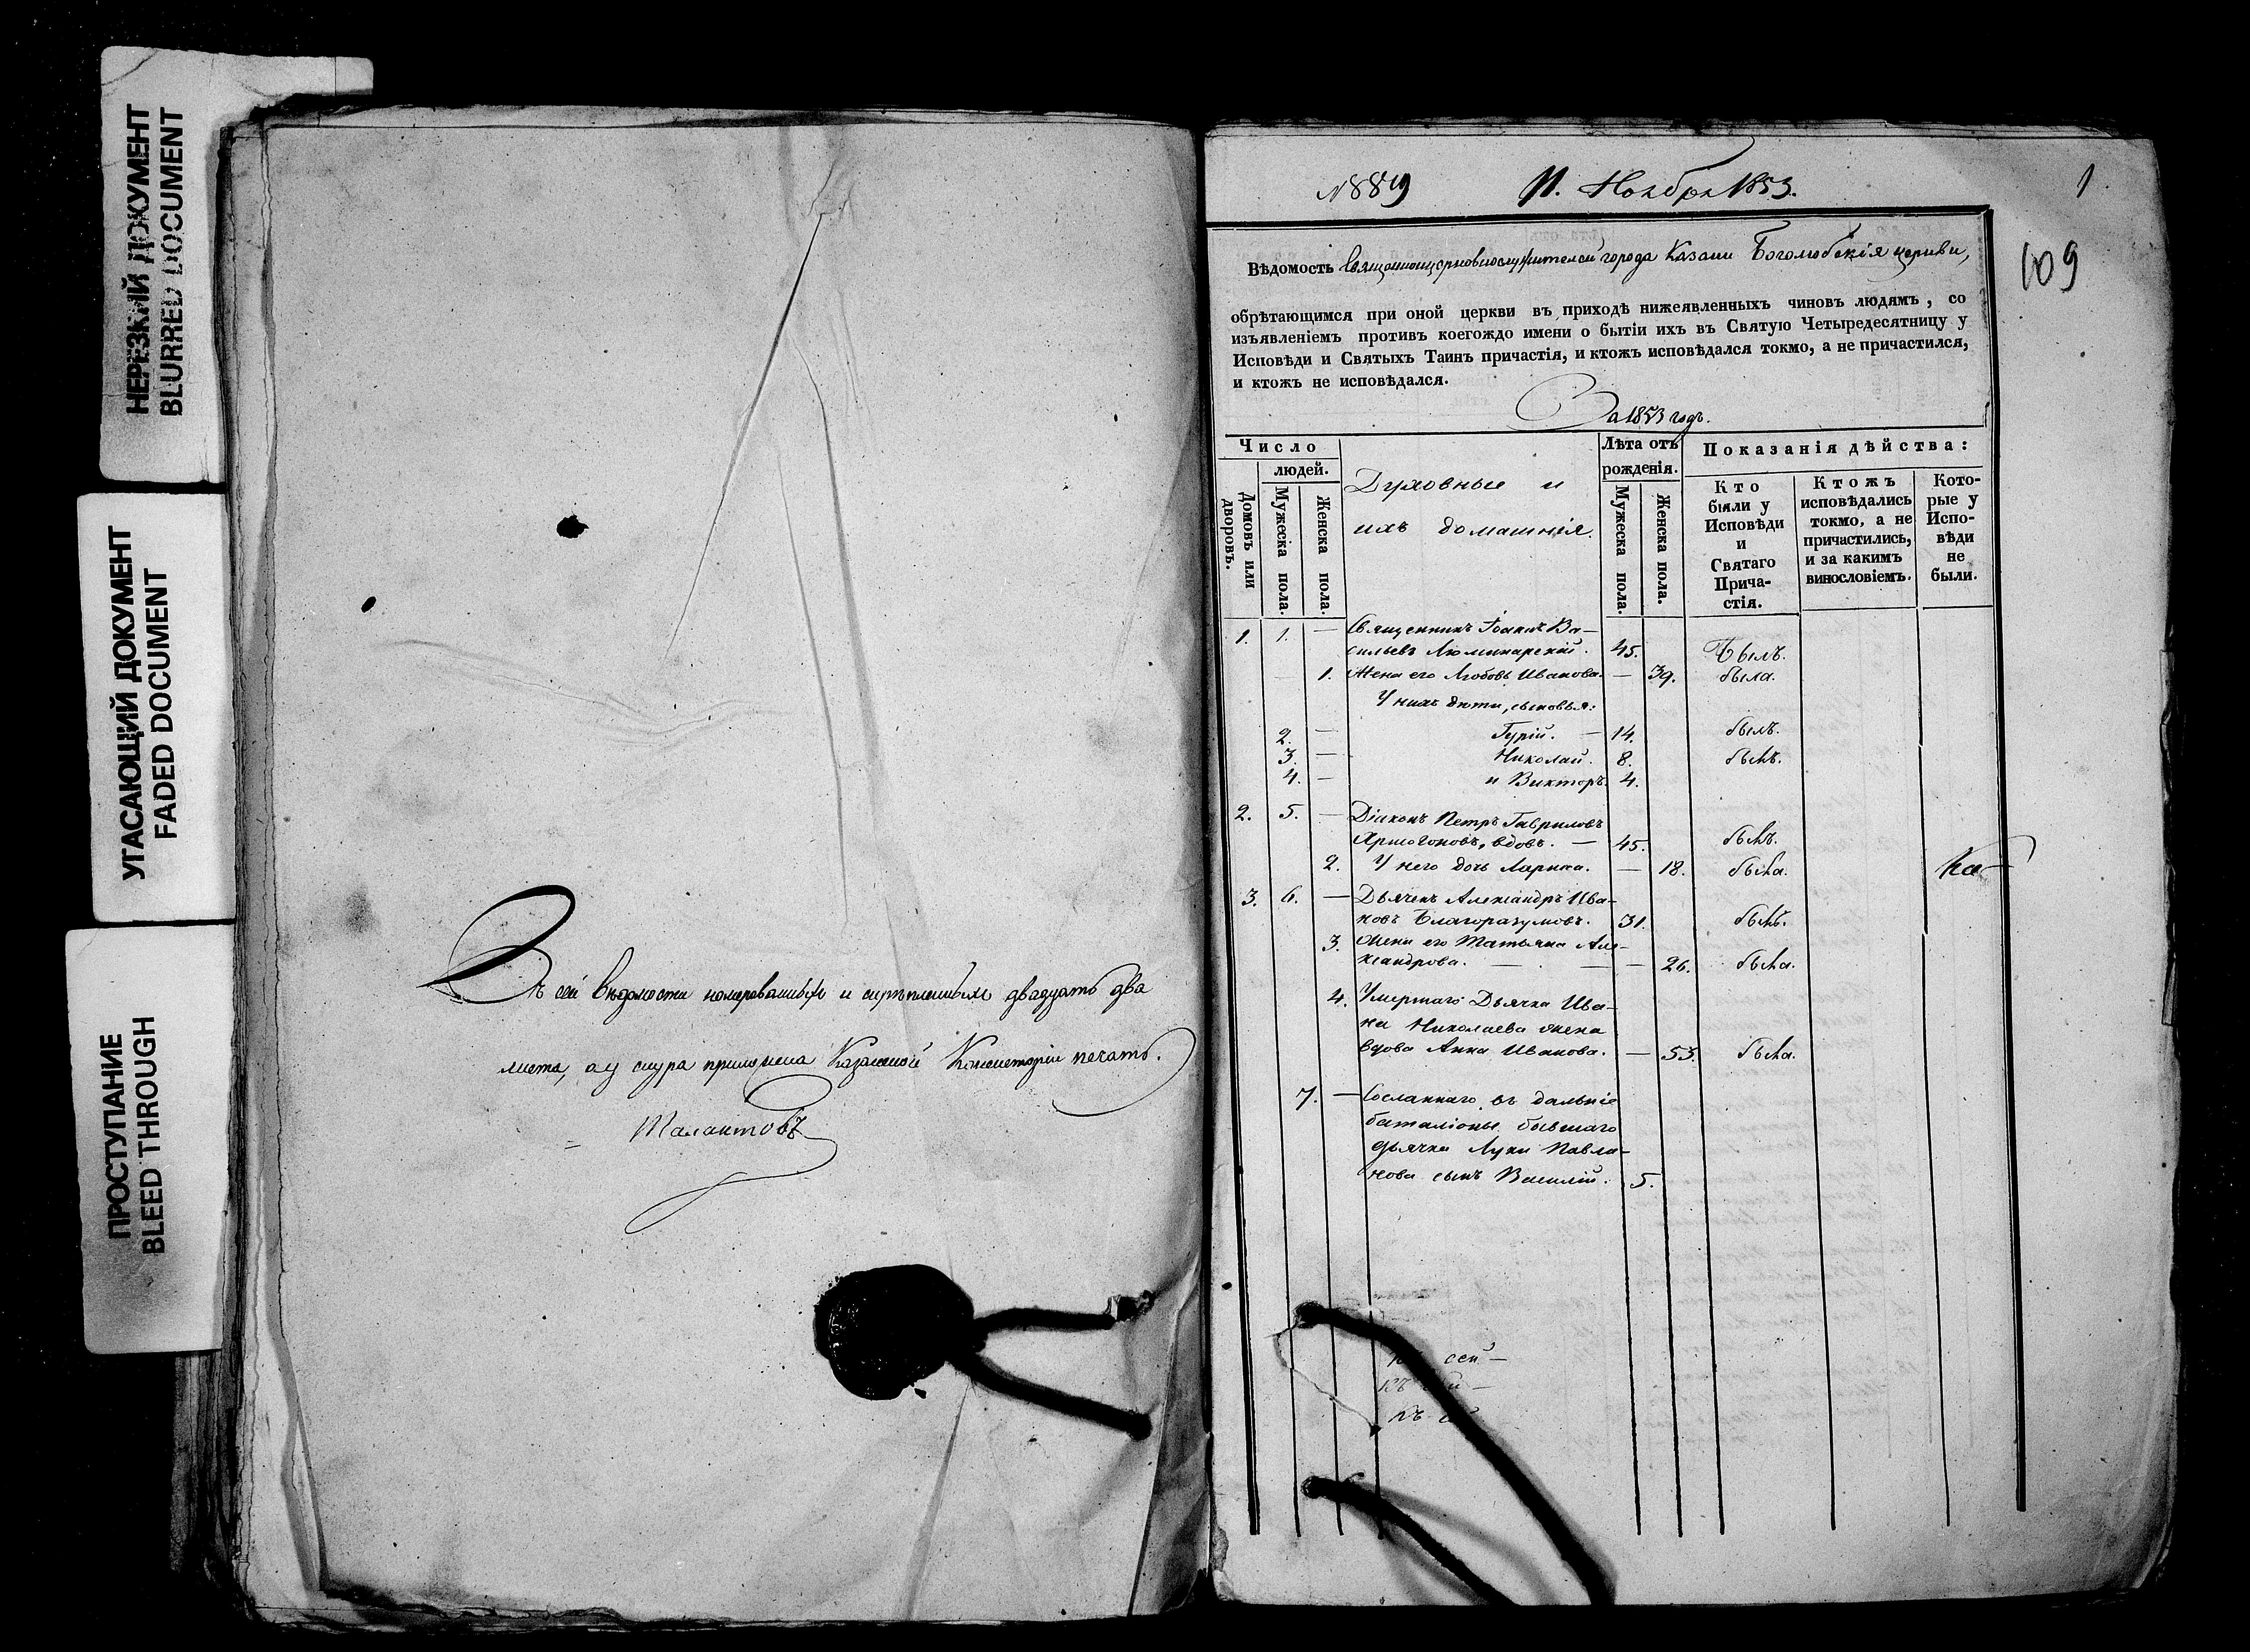 НЕРЕЗКИЙ ДОКУМЕНТ
BLURRED DOCUMENT
УГАСАЮЩИЙ ДОКУМЕНТ
FADED DOCUMENT
ПРОСТУПАНИЕ
BLEED THROUGH
Въ сей вѣдомости номерованныхъ и скрѣпленныхъ двадцать два
листа, а у снура приложена Казанской Консисторіи печать.
Талантовъ
№ 889 11. Ноября 1853. 1
109
Вѣдомость Священноцерковнослужителей города Казани Боголюбскія церкви,
обрѣтающимся при оной церкви въ приходѣ нижеявленныхъ чиновъ людямъ, со
изъявленіемъ противъ коегождо имени о бытіи ихъ въ Святую Четыредесятницу у
Исповѣди и Святыхъ Таинъ причастія, и ктожъ исповѣдался токмо, а не причастился,
и ктожъ не исповѣдался.
За 1853 годъ.
Число
людей.
Домовъ или дворовъ.
Мужеска пола.
Женска пола.
Духовные и
ихъ домашнія.
Лѣта отъ
рожденія.
Мужеска пола.
Женска пола.
Показанія дѣйства:
Кто
были у
Исповѣди
и
Святаго
Прича-
стія.
Ктожъ
исповѣдались
токмо, а не
причастились,
и за какимъ
винословіемъ.
Кото-
рые у
Испо-
вѣди
не
были.
1. 1. — Священникъ Іоаннъ Ва-
сильевъ Люминарскій. 45. Былъ.
1. Жена его Любовь Иванова. — 39. была.
У нихъ дѣти, сыновья:
2. — Гурій. — 14. былъ.
3. — Николай. 8. былъ.
4. — и Викторъ. 4.
2. 5. — Діаконъ Петръ Гавриловъ
вдовъ. — 45. былъ.
2. У него дочь Лариса. — 18. была.
Ка-
3. 6. — Дьячекъ Александръ Ива-
новъ Благоразумовъ. 31. былъ.
3. Жена его Татьяна Але-
ксандрова. — — — 26. была.
4. Умершаго Дьячка Ива-
на Николаева жена
вдова Анна Иванова. — 53. была.
7. — Сосланнаго въ дальніе
баталіоны бывшаго
дьячка Луки Павла-
нова сынъ Василій. 5.
сей —
къ —
къ